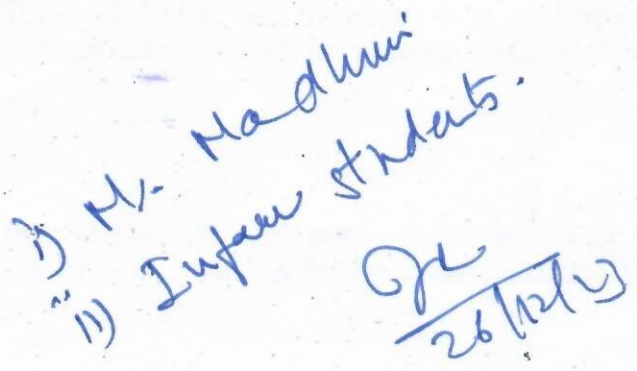 i) Ms. Madhuri
ii) Inform students.
26/12/23